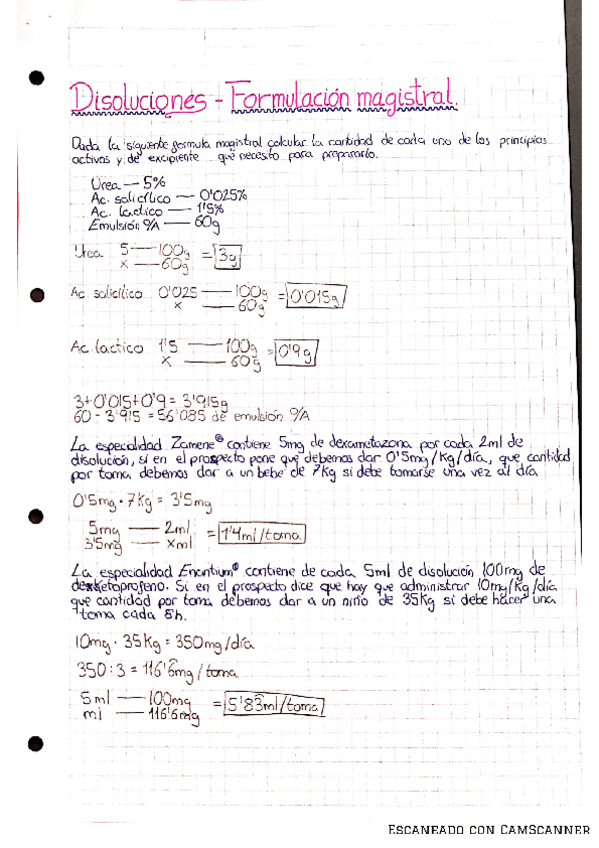 Disoluciones - Formulación magistral.
Dada la siguiente formula magistral calcular la cantidad de cada uno de los principios
activos y de excipiente que necesito para prepararlo.
Urea — 5%
Ac. salicílico — 0'025%
Ac. lactico — 1'5%
Emulsión O/A — 60g
Urea 5 — 100g = 3g
x — 60g
Ac. salicílico 0'025 — 100g = 0'015g
x — 60g
Ac. lactico 1'5 — 100g = 0'9g
x — 60g
3+0'015+0'9 = 3'915g
60 - 3'915 = 56'085 de emulsión O/A
La especialidad Zamene® contiene 5mg de dexametazona por cada 2ml de
disolución, si en el prospecto pone que debemos dar 0'5mg/kg/día, que cantidad
por toma debemos dar a un bebe de 7kg si debe tomarse una vez al día
0'5mg · 7kg = 3'5mg
5mg — 2ml = 1'4ml/toma
3'5mg — xml
La especialidad Enantium® contiene de cada 5ml de disolución 100mg de
dexketoprofeno. Si en el prospecto dice que hay que administrar 10mg/kg/día
que cantidad por toma debemos dar a un niño de 35kg si debe hacer una
toma cada 8h.
10mg · 35kg = 350mg/día
350:3 = 116'6mg/toma
5ml — 100mg = 5'83ml/toma
ml — 116'6mg
ESCANEADO CON CAMSCANNER